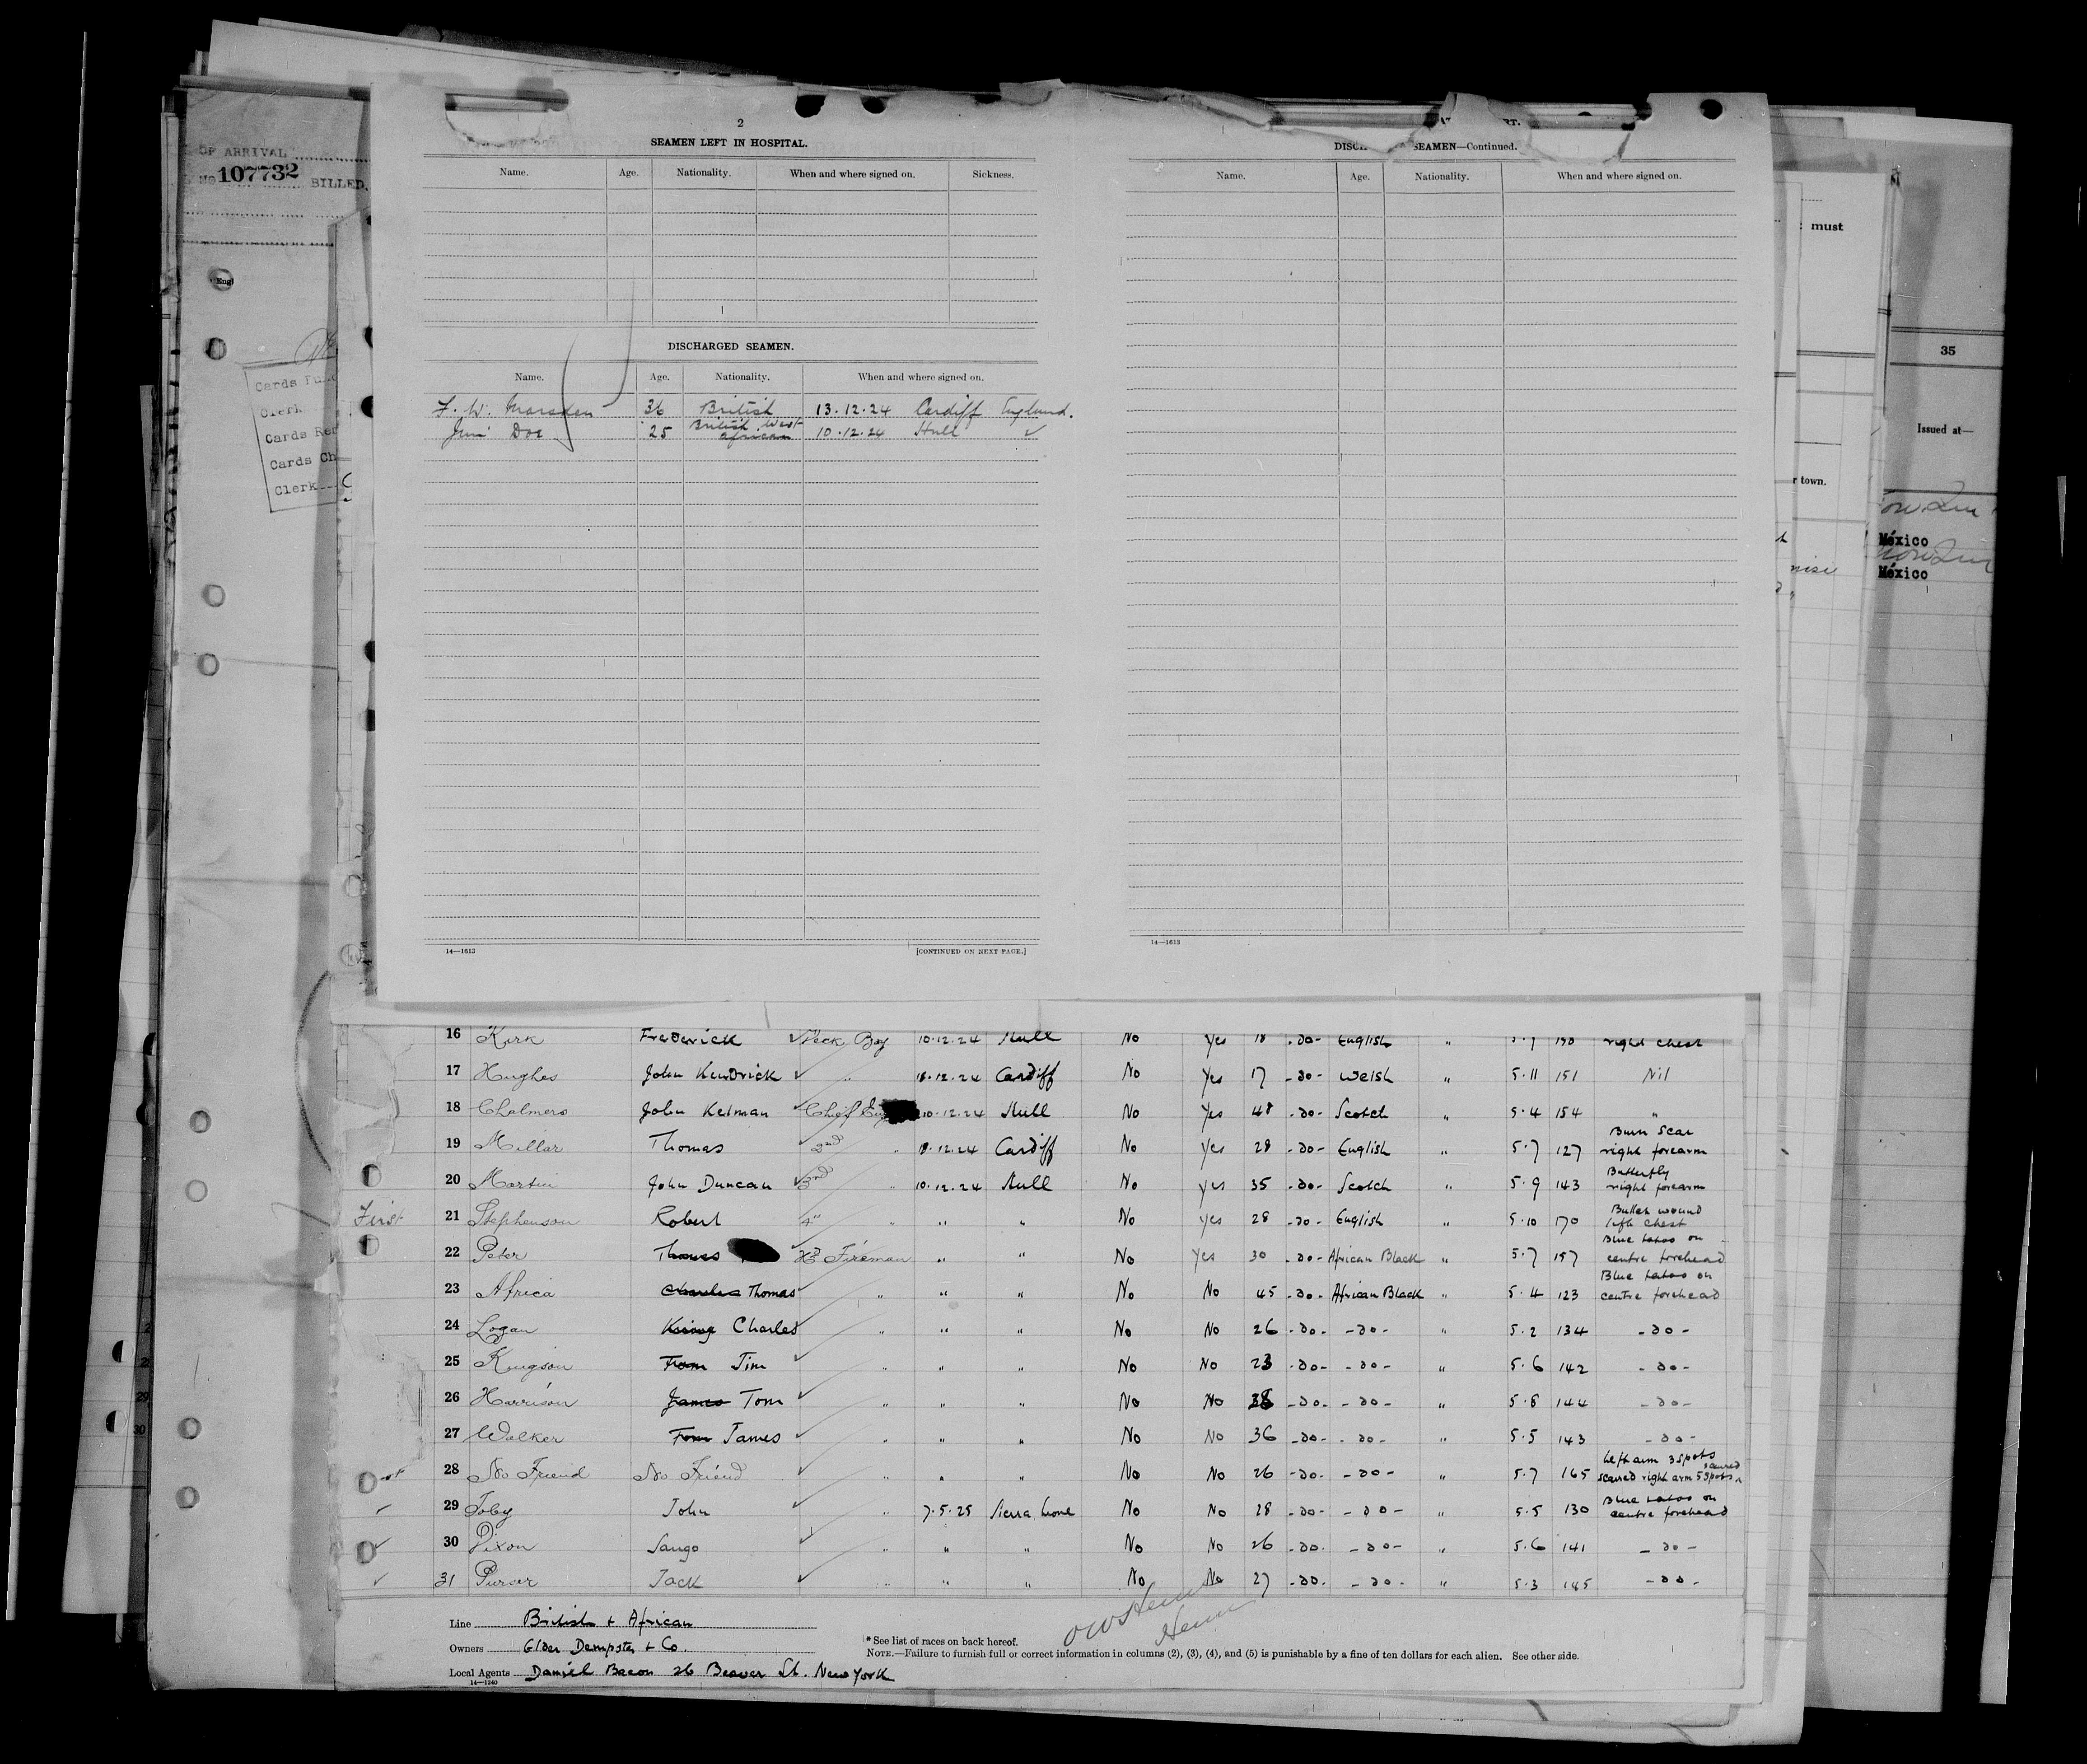 OF ARRIVAL
No 107732 BILLED
Engl
Cards
Clerk
Cards
Cards Ch
Clerk
2
SEAMEN LEFT IN HOSPITAL.
Name. Age. Nationality. When and where signed on. Sickness.
DISCHARGED SEAMEN.
Name. Age. Nationality. When and where signed on.
F. W. Marsden 36 British 13.12.24 Cardiff England.
Jim Doe 25 British West African 10.12.24 Hull ✓
14—1613 [CONTINUED ON NEXT PAGE.]
SEAMEN—Continued.
Name. Age. Nationality. When and where signed on.
14—1613
must
r town.
35
Issued at—
México
México
16 Kirk Frederick Deck Boy 10.12.24 Hull No Yes 18 -do- English " right chest
17 Hughes John Kendrick " 18.12.24 Cardiff No Yes 17 -do- Welsh " 5.11 151 Nil
18 Chalmers John Kelman Chief Eng 10.12.24 Hull No Yes 48 -do- Scotch " 5.4 154 "
19 Millar Thomas 2nd " 18.12.24 Cardiff No Yes 28 -do- English " 5.7 127 Burn Scar right forearm
20 Martin John Duncan 3rd " 10.12.24 Hull No yes 35 -do- Scotch " 5.9 143 Butterfly right forearm
First 21 Stephenson Robert 4" " " " No yes 28 -do- English " 5.10 170 Bullet wound left chest
22 Peter Thomas Fireman " " No Yes 30 -do- African Black " 5.7 157 Blue tatoo on centre forehead
23 Africa Charles Thomas " " " No No 45 -do- African Black " 5.4 123 Blue tatoo on centre forehead
24 Logan Charles " " " No No 26 -do- -do- " 5.2 134 -do-
25 Kingson Tom Jim " " " No No 23 -do- -do- " 5.6 142 -do-
26 Harrison James Tom " " " No No 38 -do- -do- " 5.8 144 -do-
27 Walker Tom James " " " No No 36 -do- -do- " 5.5 143 -do-
28 No Friend No Friend " " " No No 26 -do- -do- " 5.7 165 Left arm 3 spots scared right arm 5 spots
29 Toby John " 7.5.25 Sierra Leone No No 28 -do- -do- " 5.5 130 Blue tatoo on centre forehead
30 Dixon Sango " " " No No 26 -do- -do- " 5.6 141 -do-
31 Purser Jack " " " No No 27 -do- -do- " 5.3 145 -do-
Line British & African
Owners Elder Dempster & Co.
Local Agents Daniel Bacon 26 Beaver St. New York
14—1240
* See list of races on back hereof.
NOTE.—Failure to furnish full or correct information in columns (2), (3), (4), and (5) is punishable by a fine of ten dollars for each alien. See other side.